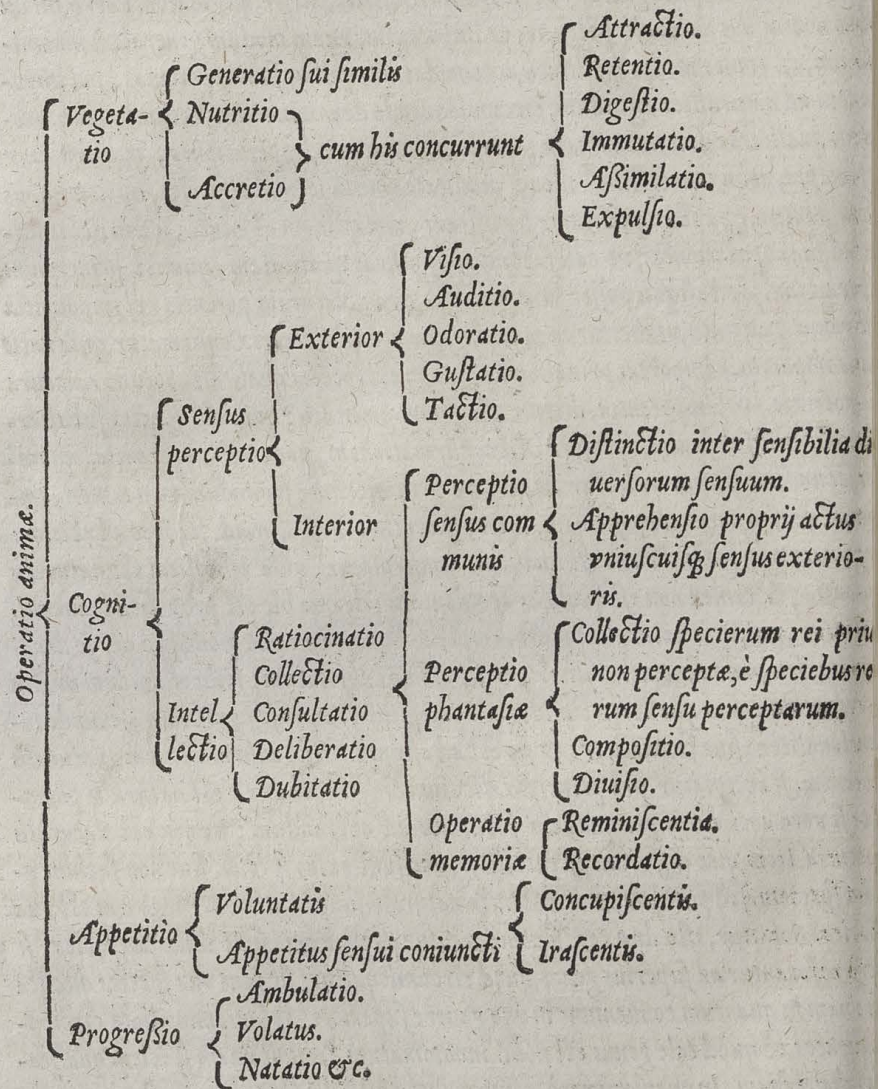 Operatio animæ.
Vegeta-
tio
Generatio ſui ſimilis
Nutritio
Accretio
cum his concurrunt
Attractio.
Retentio.
Digeſtio.
Immutatio.
Aßimilatio.
Expulſio.
Cogni-
tio
Senſus
perceptio
Exterior
Viſio.
Auditio.
Odoratio.
Guſtatio.
Tactio.
Interior
Perceptio
ſenſus com
munis
Diſtinctio inter ſenſibilia di
uerſorum ſenſuum.
Apprehenſio proprij actus
vniuſcuiſq; ſenſus exterio-
ris.
Perceptio
phantaſiæ
Collectio ſpecierum rei priu
non perceptæ, è ſpeciebus re
rum ſenſu perceptarum.
Compoſitio.
Diuiſio.
Operatio
memoriæ
Reminiſcentia.
Recordatio.
Intel
lectio
Ratiocinatio
Collectio
Conſultatio
Deliberatio
Dubitatio
Appetitio
Voluntatis
Appetitus ſenſui coniuncti
Concupiſcentis.
Iraſcentis.
Progreßio
Ambulatio.
Volatus.
Natatio &c.